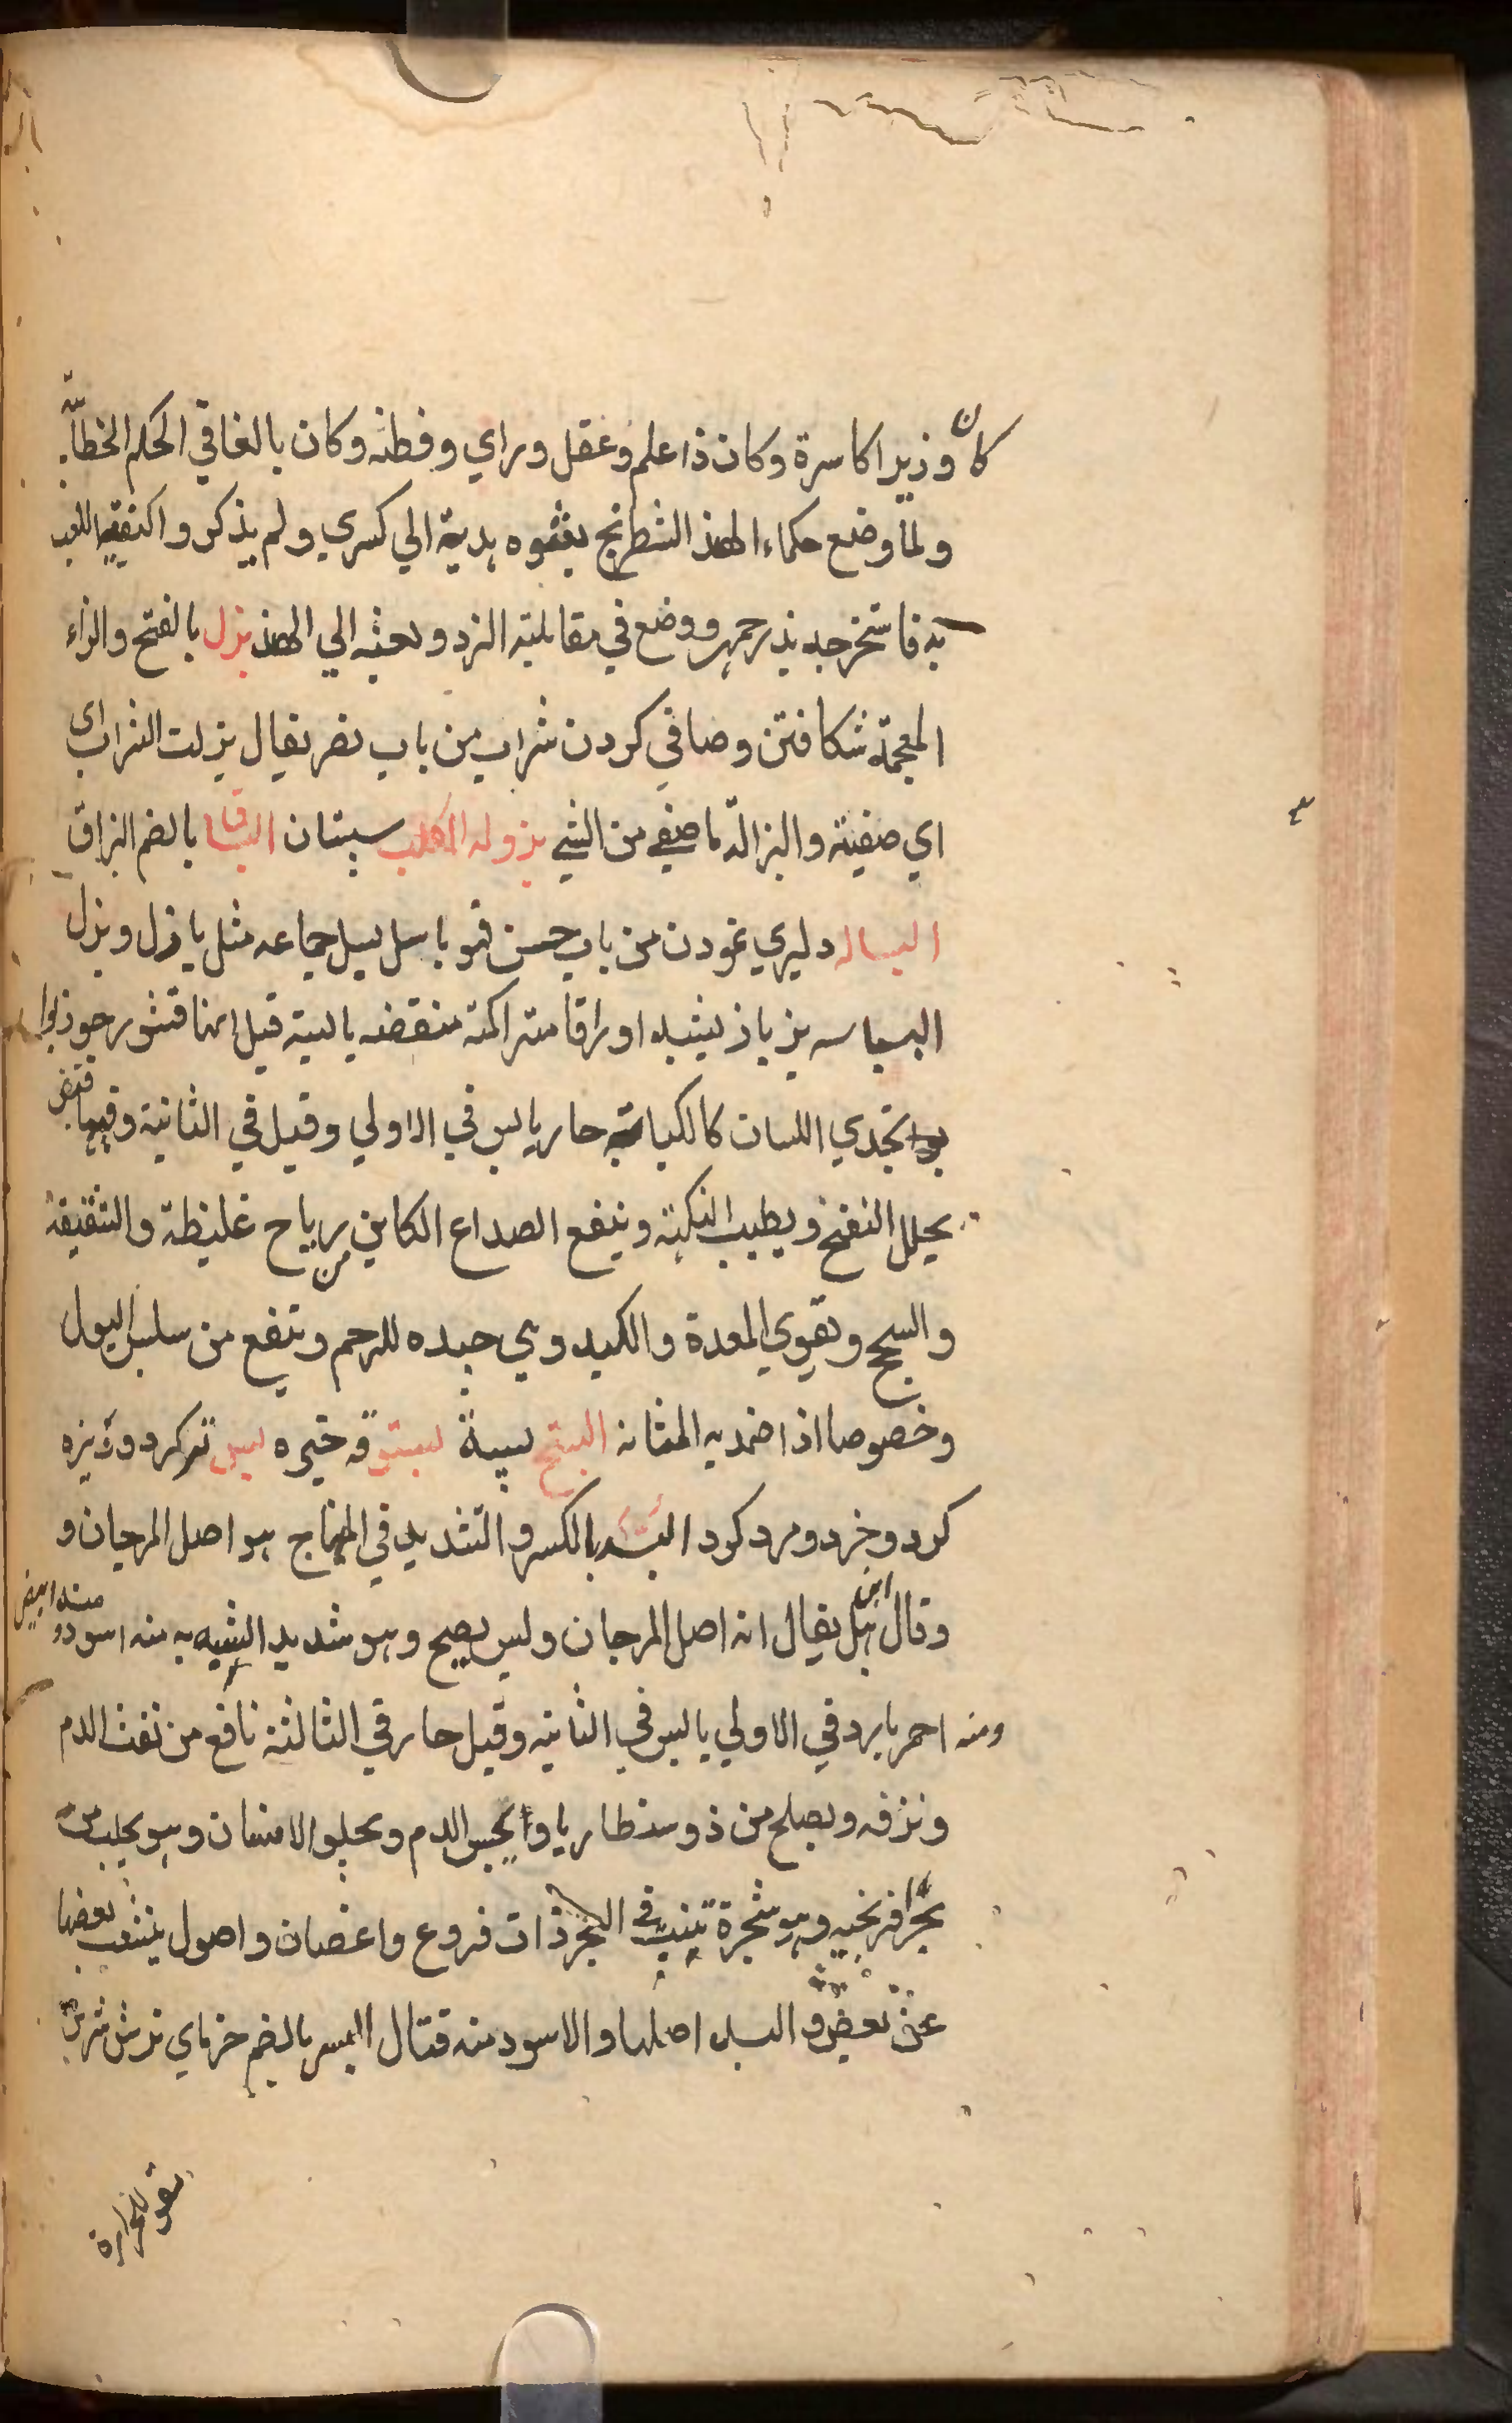 كان وزير اكاسرة وكان ذا علم وعقل وراي وفطنه وكان بالغا في الحكم الخطابه
ولما وضع حكماء الهند الشطرنج بعثوه هدية الي كسري ولم يذكروا كيفية اللعب
به فاستخرجه بزرجمهر ووضع في مقابلته النرد وبعثه الي الهند بزل بالفتح والزاء
المعجمة شكافتن وصافي كردن شراب من باب نصر يقال بزلت الشراب اي
اي صفيته والبزالة ما صفي من الشي بزوله الكلب سپستان البساق بالضم البزاق
البساله دليري نمودن من باب حسن فهو باسل بسل جماعه مثل بازل وبزل
البسباسه بزباز يشبه اوراقا متراكمة منقضه يابسة قيل انها قشور جوزبوا
يحذي اللسان كالكبابة حار يابس في الاولي وقيل في الثانية وفيها قبض
يحلل النفخ ويطيب النكهة وينفع الصداع الكاين من رياح غليظة والشقيقة
والسحج وتقوي المعدة والكبد وهي جيده للرحم وينفع من سلس البول
وخصوصا اذا ضمد به المثانه البستج بستوقه خيره بسر تر كرد وريزه
كرد وخرد ومرد كرد البسد بالكسر والتشديد في المنهاج هو اصل المرجان و
وقال ابن بل يقال انه اصل المرجان وليس بصيح وهو شديد الشبه به منه اسود ومنه ابيض
ومنه احمر بارد في الاولي يابس في الثانيه وقيل حار في الثالثة نافع من نفث الدم
ونزفه ويصلح من ذوسنطاريا ويحبس الدم ويجلو الاسنان وهو يجلب من
بحر افرنجيه وهو شجرة تنبت في البحر ذات فروع واغصان واصول ينشعب بعضها
عن بعض والبسد اصلها والاسود منه قتال البسر بالضم خرماي ترش شرين